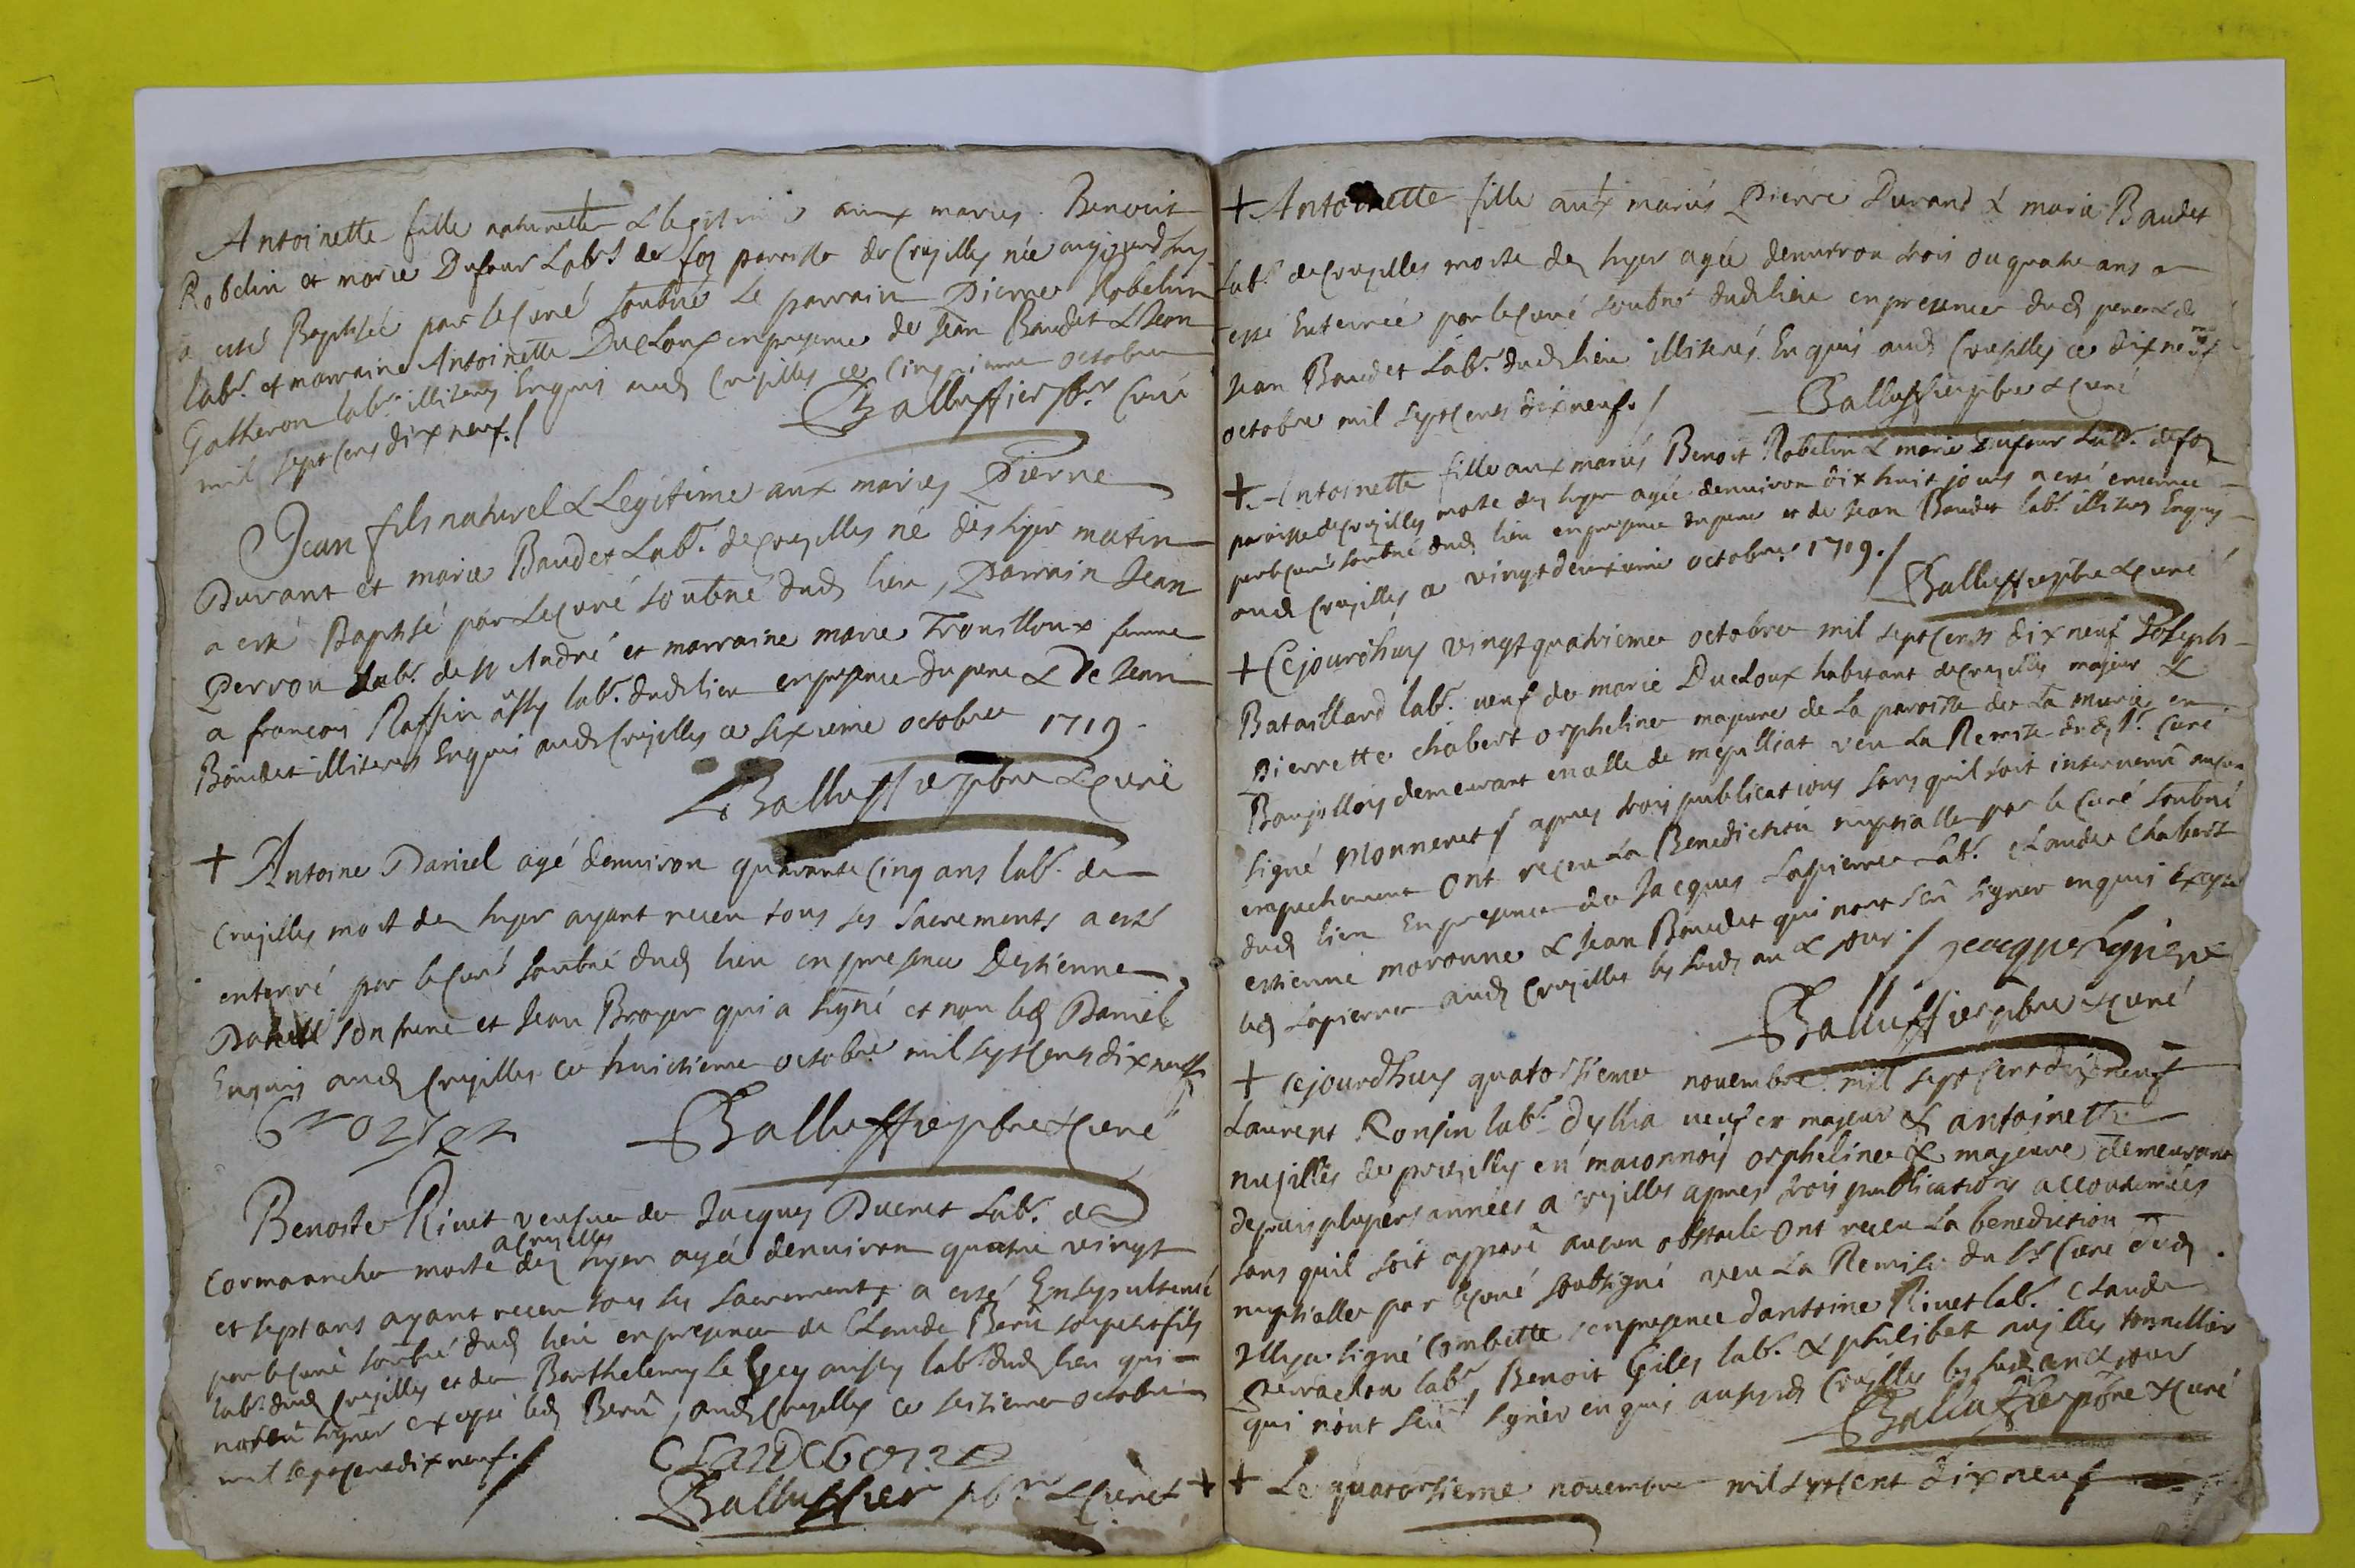 Antoinette fille naturelle & legitime aux mariés Benoist
Robelin et marie Dufour Lab.r de foy paroisse de Crujilles née aujourdhuy
a esté Baptisée par le Curé soubne Le parrain Pierre Robelin
lab.r et marraine Antoinette Ducloux en presence de Jean Baudet & Jean
Gatheron lab.rs illiteres Enquis aud Crujilles ce cinquieme octobre
mil sept cens dix neuf./
Balluffier pbr Curé
Jean fils naturel & Legitime aux mariés Pierre
Durant et marie Baudet Lab.r de Crujilles né des hyer matin
a esté Baptisé par le Curé soubné dud lieu, Parrain Jean
Perron Lab.r de St André et marraine marie Trouilloux femme
a francois Raffin assy lab.r dud lieu en presence du pere & de Jean
Baudet illiteres Enquis aud Crujilles ce sixieme octobre 1719.
Balluffier pbre & curé
+ Antoine Daniel agé denuiron quarante cinq ans lab.r de
Crujilles mort des hyer ayant receu tous ses sacrements a esté
enterré par le Curé soubné dud lieu en presence Destienne
Daniel son frere et Jean Broyer qui a signé et non led Daniel
Enquis aud Crujilles ce huictieme octobre mil sept cens dix neuf
Broyer
Balluffier pbre & curé
Benoite Rivet veufue de Jacques Ducret Lab.r de
a Crujilles
Cormaranche morte des hyer agée denuiron quatre vingt
et sept ans ayant receu tous ses sacrements a esté Ensepulturé
par le Curé soubné dud lieu en presence de Claude Berû son petit fils
lab.r dud Crujilles et de Barthelemy Le aussy lab.r dud lieu qui
signer excepté led Berû, aud Crujilles ce seizieme octobre
mil sept cens dix neuf./
Claude
Balluffier pbr & Curé +
+ Antoinette fille aux mariés Pierre Durand & marie Baudet
lab.r de Crujilles morte des hyer agée denuiron trois ou quatre ans a
esté Enterrée par le Curé soubné dud lieu en presence dud pere & de
Jean Baudet Lab.r dud lieu illiterés Enquis aud Crujilles ce dix neuf
octobre mil sept cens dix neuf./
Balluffier pbre & curé
+ Antoinette fille aux mariés Benoit Robelin & marie Dufour Lab.r de foy
paroisse de Crujilles morte des hyer agée denuiron dix huit jours a esté enterrée
par le Curé soubné dud lieu en presence du pere et de Jean Baudet lab.r illiteres Enquis
aud Crujilles ce vingt deuxieme octobre 1719./
Balluffier pbre & Curé
+ Cejourdhuy vingt quatrieme octobre mil sept cents dix neuf Joseph
Bataillard lab.r veuf de marie Ducloux habitant de Crujilles majeur &
Pierrette Chabert orpheline majeure de La paroisse de La murie en
Baujollois demeurant en celle de mepilliat veu La Remise dud S.r Curé
signé Monneret/ apres trois publications sans quil soit intervenu aucun
empechement ont receu La Benediction nuptialle par le Curé soubné
dud lieu En presence de Jacques Lapierre Lab.r Claude Chabert
estienne moronne & Jean Baudet qui nont sceu signer enquis excepté
led Lapierre aud Crujilles les susd an & jour./ Jacque
Balluffier pbre & curé
+ Cejourdhuy quatorzieme novembre mil sept cent dix neuf
Laurent Ronjin lab.r veuf et majeur & antoinette
nujilles de en maconnois orpheline & majeure demeurant
depuis plusieurs années a Crujilles apres trois publications accoutumées
sans quil soit apparû aucun obstacle Ont receu La benediction
nuptialle par le Curé soubsigné veu La Remise du S.r Curé dud
signé Combette, en presence dantoine Rivet lab.r Claude
Perrachon lab.r, Benoit Giles lab.r & philibet nujilles tonnellier
qui nont sceu signer enquis aud Crujilles les susd an & jour
Balluffier pbre & curé
+ Le quatorzieme novembre mil sept cent dix neuf